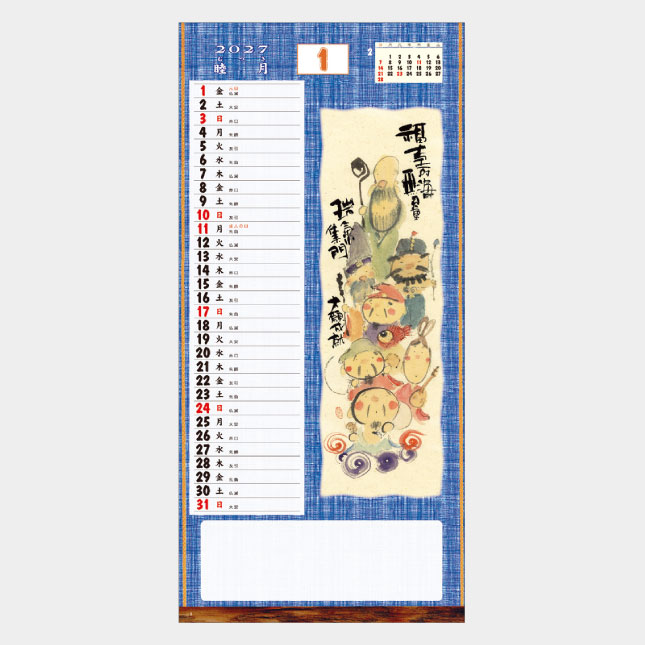 2027
睦月
1
2
日 月 火 水 木 金 土
1 2 3 4 5 6
7 8 9 10 11 12 13
14 15 16 17 18 19 20
21 22 23 24 25 26 27
28
1 金 元日
2 土 大安
3 日 赤口
4 月 先勝
5 火 友引
6 水 先負
7 木 仏滅
8 金 赤口
9 土 先勝
10 日 友引
11 月 成人の日 先負
12 火 仏滅
13 水 大安
14 木 赤口
15 金 先勝
16 土 友引
17 日 先負
18 月 仏滅
19 火 大安
20 水 赤口
21 木 先勝
22 金 友引
23 土 先負
24 日 仏滅
25 月 大安
26 火 赤口
27 水 先勝
28 木 友引
29 金 先負
30 土 仏滅
31 日 大安
瑞気集門
大願成就